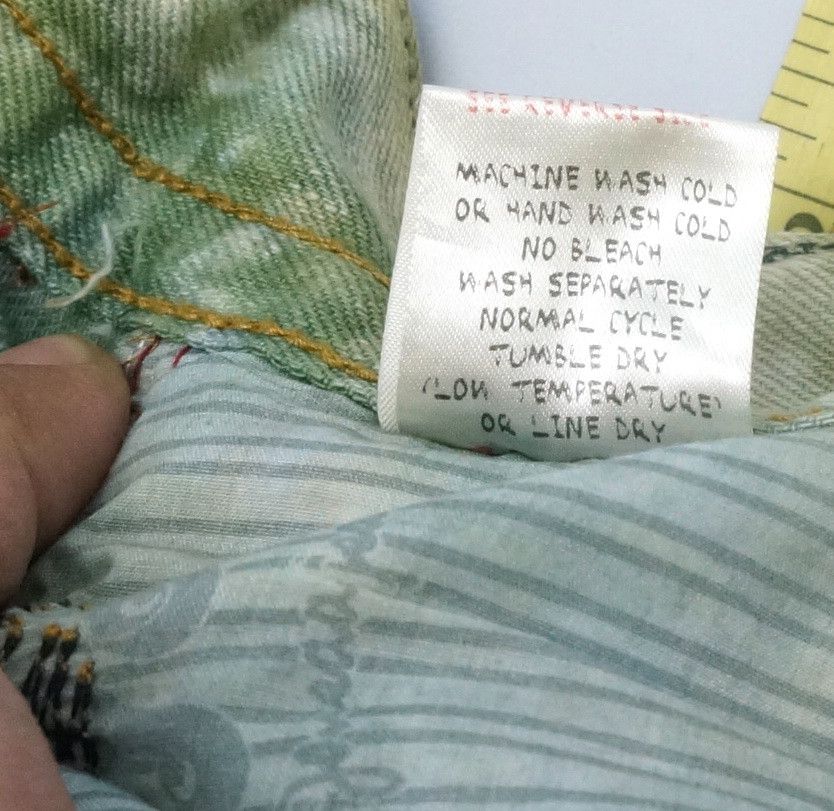 SEE REVERSE SIDE
MACHINE WASH COLD
OR HAND WASH COLD
NO BLEACH
WASH SEPARATELY
NORMAL CYCLE
TUMBLE DRY
(LOW TEMPERATURE)
OR LINE DRY